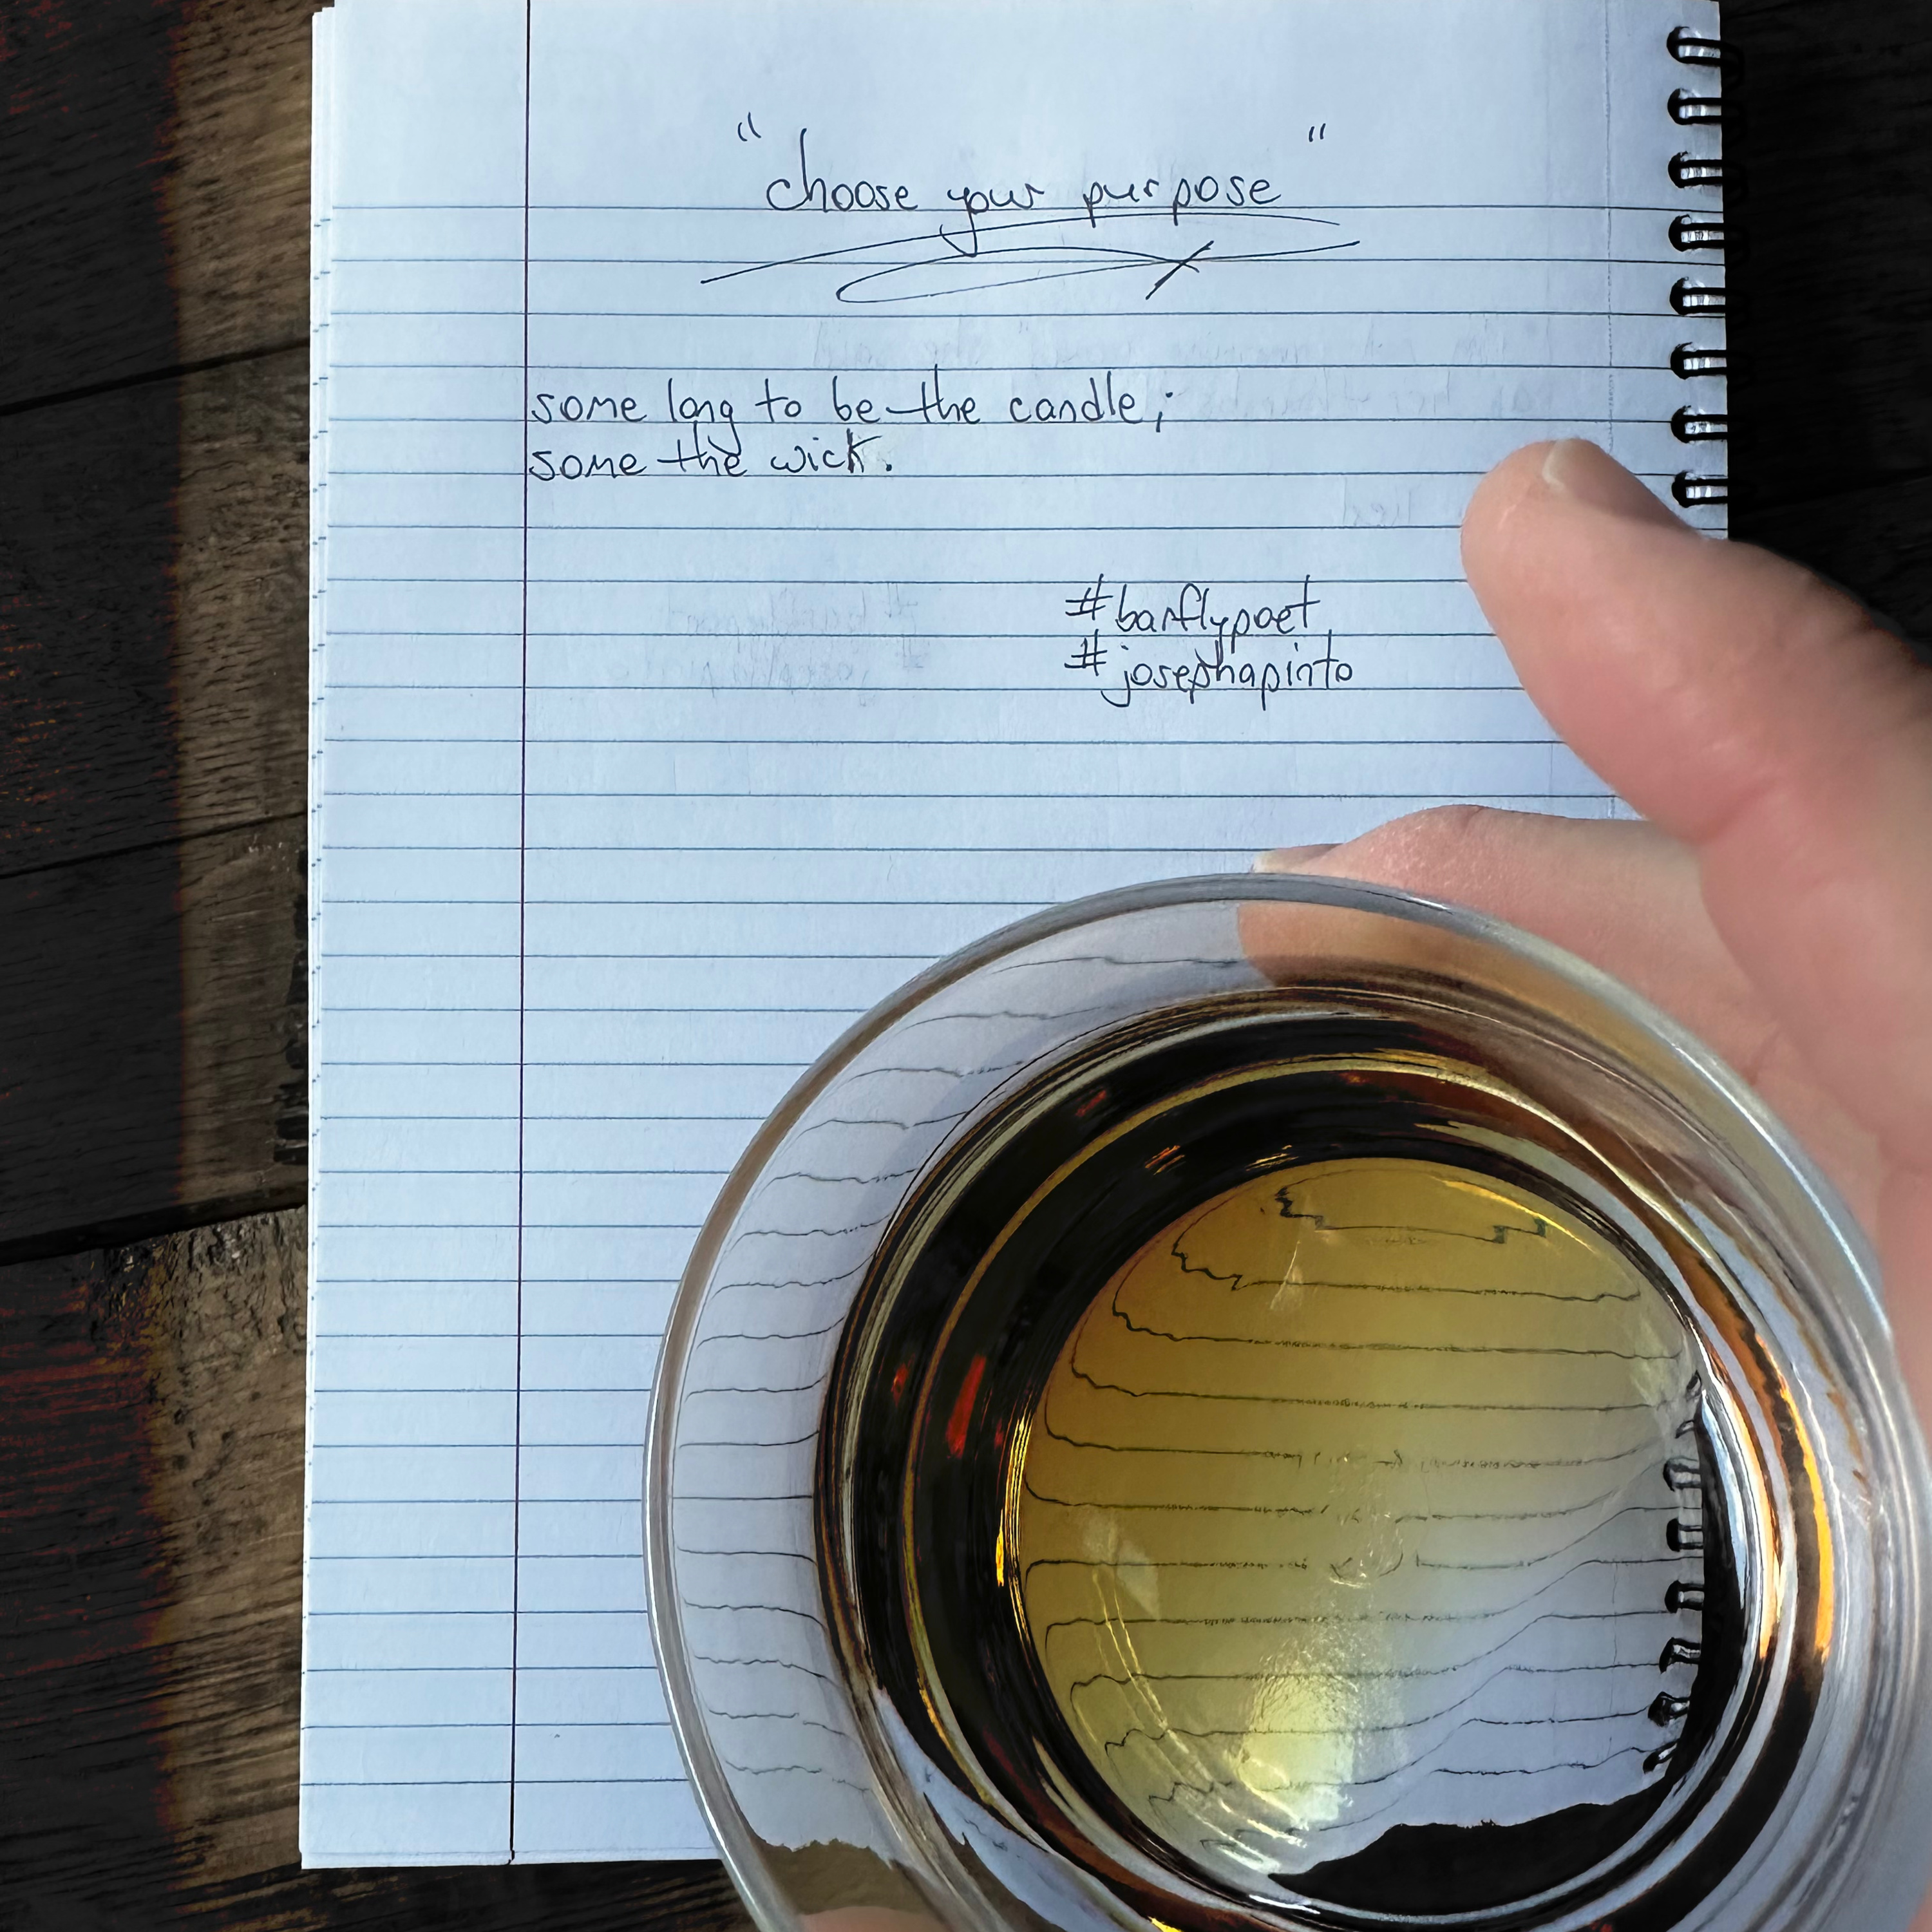 "choose your purpose"
some long to be the candle;
some the wick.
#barflypoet
#josephapinto